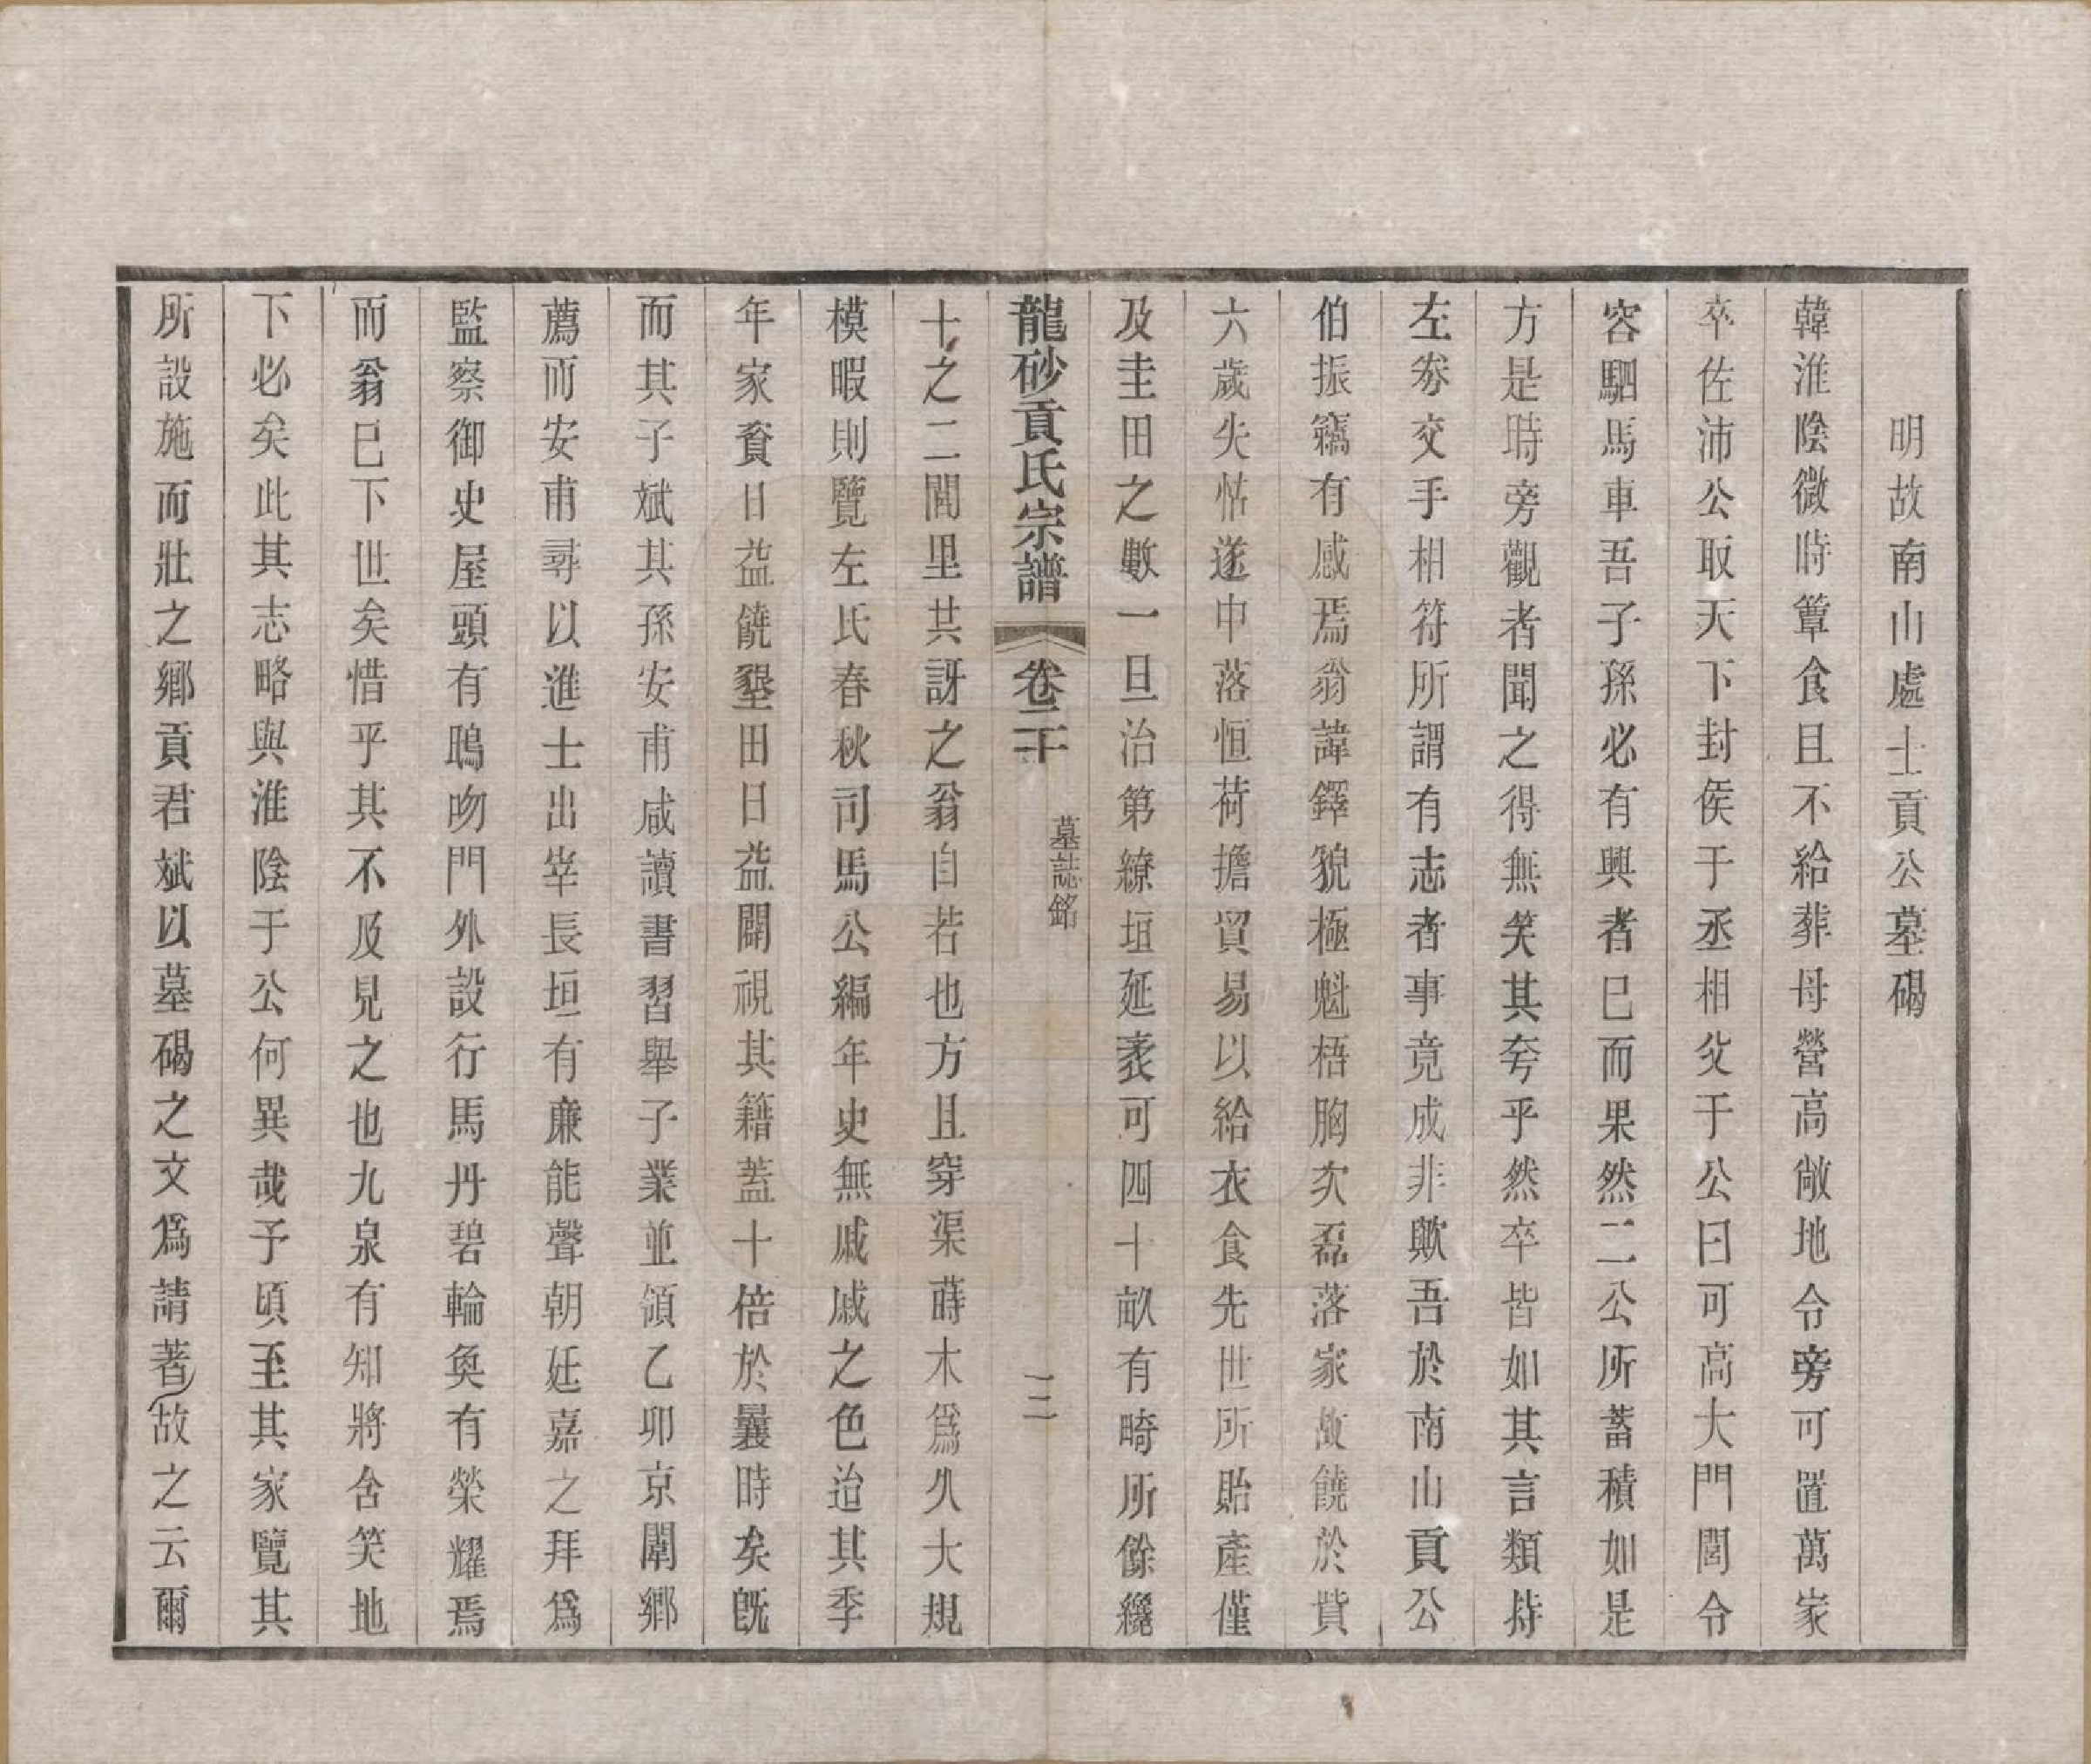 明故南山處士貢公墓碣
韓淮陰微時簞食且不給葬母營高敞地令旁可置萬家
卒佐沛公取天下封侯于丞相父于公曰可高大門閭令
容駟馬車吾子孫必有興者已而果然二公所蓄積如是
方是時旁觀者聞之得無笑其夸乎然卒皆如其言類持
左劵交手相符所謂有志者事竟成非歟吾於南山貢公
伯振竊有感焉翁諱鐸貌極魁梧胸次磊落家故饒於貲
六歲失怙遂中落恒荷擔貿易以給衣食先世所貽產僅
及圭田之數一旦治第繚垣延袤可四十畝有畸所餘纔
龍砂貢氏宗譜 卷二十 墓誌銘 三
十之二閭里共訝之翁自若也方且穿渠蒔木爲久大規
模暇則覽左氏春秋司馬公編年史無戚戚之色迨其季
年家貲日益饒墾田日益闢視其籍蓋十倍於曩時矣旣
而其子斌其孫安甫咸讀書習舉子業並領乙卯京闈鄉
薦而安甫尋以進士出宰長垣有廉能聲朝廷嘉之拜爲
監察御史屋頭有鴟吻門外設行馬丹碧輪奐有榮耀焉
而翁已下世矣惜乎其不及見之也九泉有知將含笑地
下必矣此其志略與淮陰于公何異哉予頃至其家覽其
所設施而壯之鄉貢君斌以墓碣之文爲請著故之云爾